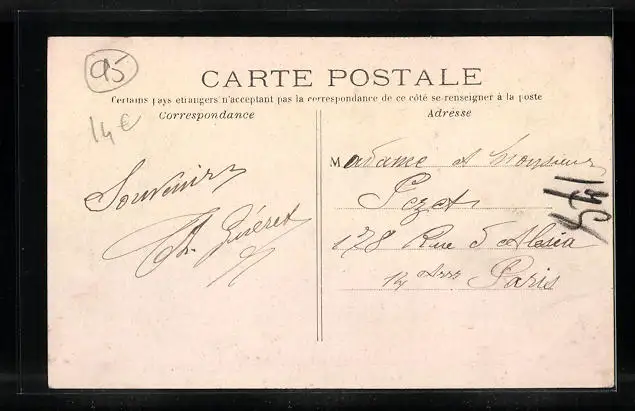 95
CARTE POSTALE
Certains pays etrangers n'acceptant pas la correspondance de ce côté se renseigner à la poste
Correspondance
Adresse
14€
Souvenirs
Th. Guéret
Madame et Monsieur
Pezet
178 Rue d'Alésia
14 Arr Paris